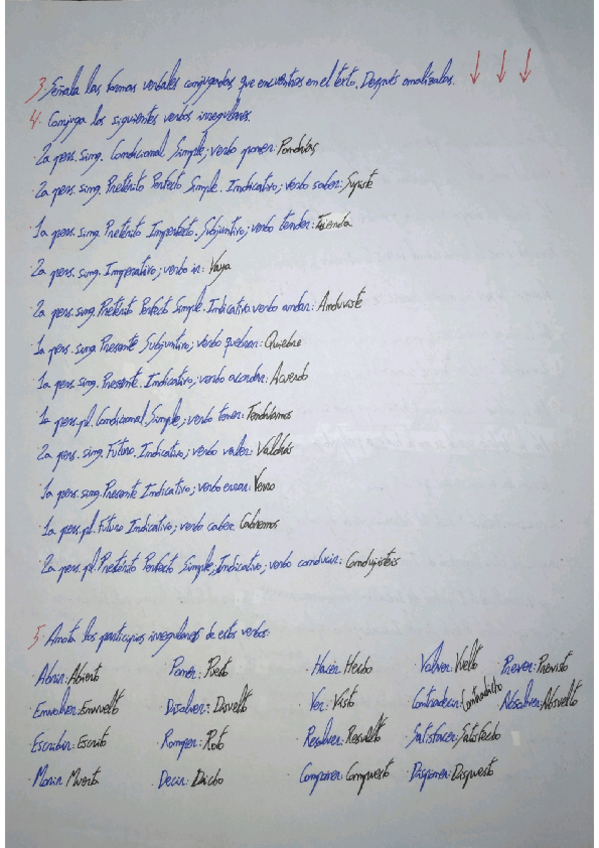 3. Señala las formas verbales conjugadas que encuentres en el texto. Después analízalas.
4. Conjuga los siguientes verbos irregulares
2a pers. sing. Condicional Simple; verbo poner: Pondrías
· 2a pers. sing. Pretérito Perfecto Simple. Indicativo; verbo saber: Supiste
· 1a pers. sing. Pretérito Imperfecto. Subjuntivo; verbo tender: Tienda
· 2a pers. sing. Imperativo; verbo ir: Vaya
· 2a pers. sing. Pretérito Perfecto Simple. Indicativo verbo andar: Anduviste
· 1a pers. sing. Presente Subjuntivo; verbo quebrar: Quiebre
· 1a pers. sing. Presente. Indicativo; verbo acordar: Acuerdo
· 1a pers. pl. Condicional Simple; verbo tener: Tendríamos
· 2a pers. sing. Futuro. Indicativo; verbo valer: Valdrás
· 1a pers. sing. Presente Indicativo; verbo errar: Yerro
· 1a pers. pl. Futuro Indicativo; verbo caber: Cabremos
· 2a pers. pl. Pretérito Perfecto Simple, Indicativo; verbo conducir: Condujisteis
5. Anota los participios irregulares de estos verbos:
· Abrir: Abierto · Poner: Puesto · Hacer: Hecho · Volver: Vuelto · Prever: Previsto
· Envolver: Envuelto · Disolver: Disuelto · Ver: Visto · Contradecir: Contradicho · Absolver: Absuelto
· Escribir: Escrito · Romper: Roto · Resolver: Resuelto · Satisfacer: Satisfecho
· Morir: Muerto · Decir: Dicho · Componer: Compuesto · Disponer: Dispuesto